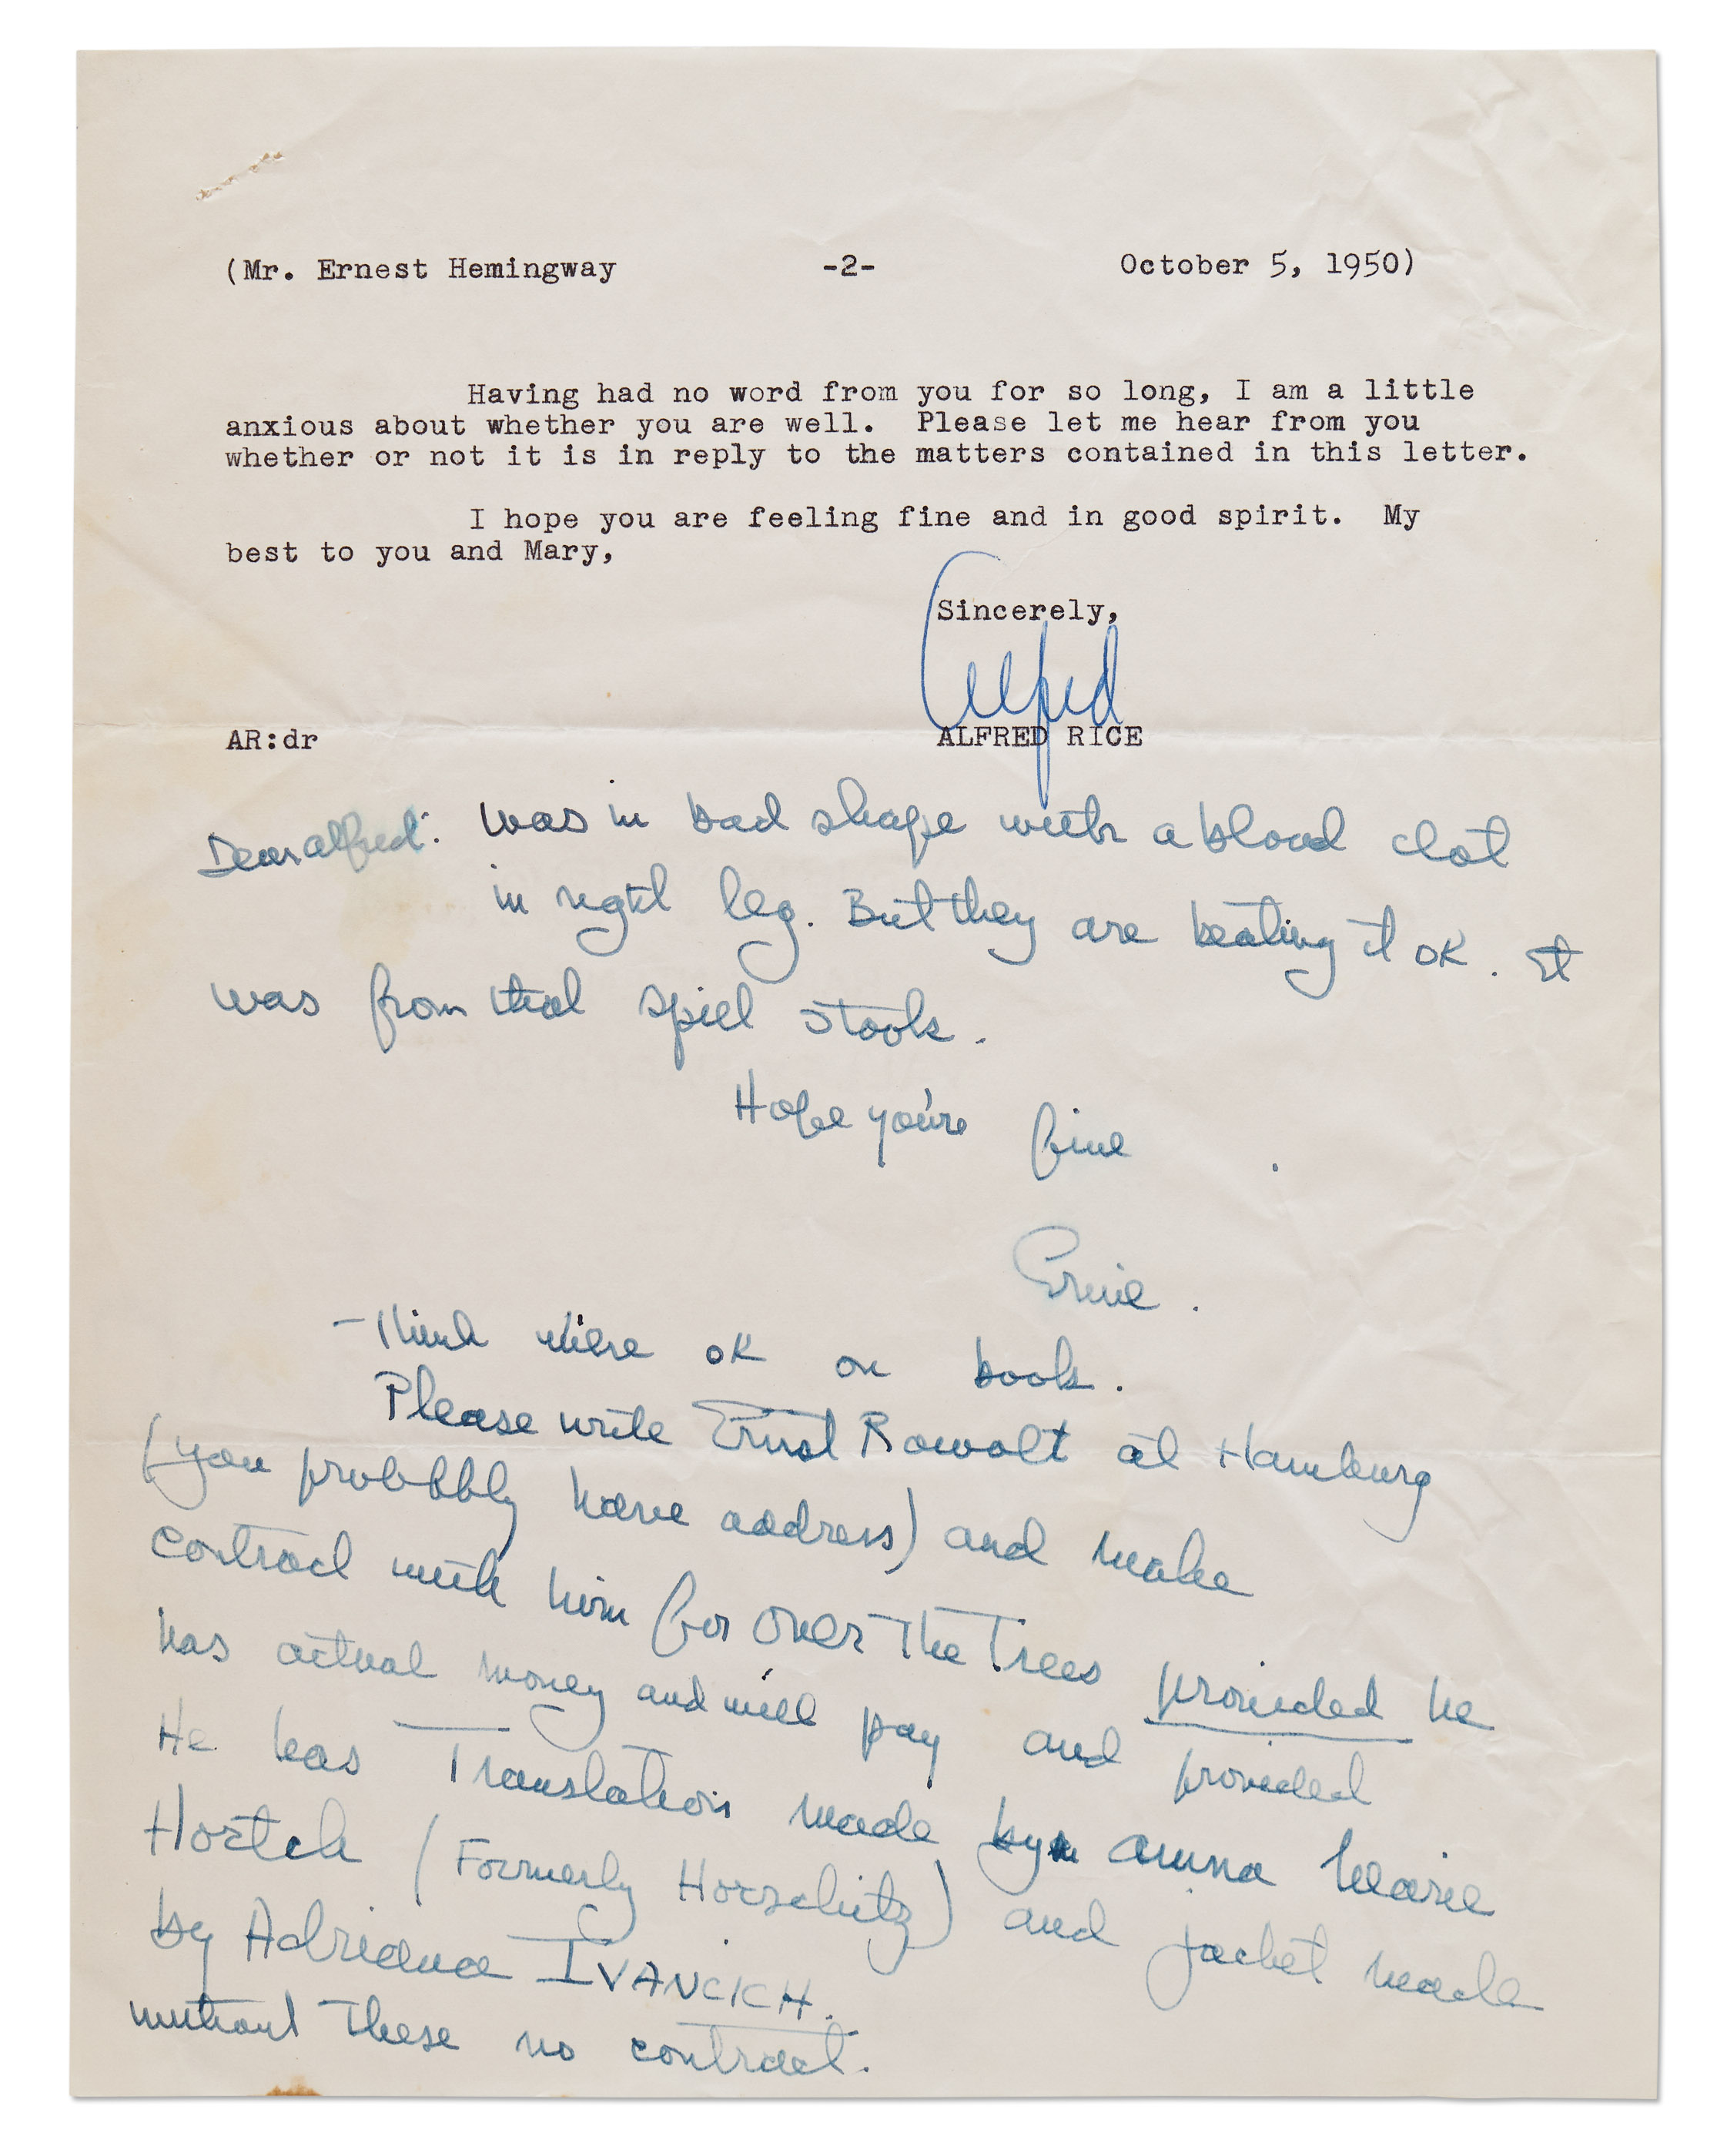 (Mr. Ernest Hemingway -2- October 5, 1950)
Having had no word from you for so long, I am a little
anxious about whether you are well. Please let me hear from you
whether or not it is in reply to the matters contained in this letter.
I hope you are feeling fine and in good spirit. My
best to you and Mary,
Sincerely,
Alfred
ALFRED RICE
AR:dr
Dear Alfred: Was in bad shape with a blood clot
in right leg. But they are beating it OK. It
was from that spill I took.
Hope you're fine.
Ernie.
- Think we're OK on book.
Please write Ernst Rowolt at Hamburg
(you probbbly have address) and make
contract with him for Over The Trees provided he
has actual money and will pay and provided
He has Translation made by Anna Marie
Hortch (Formerly Horschitz) and jacket made
by Adriana IVANCICH.
without these no contract.